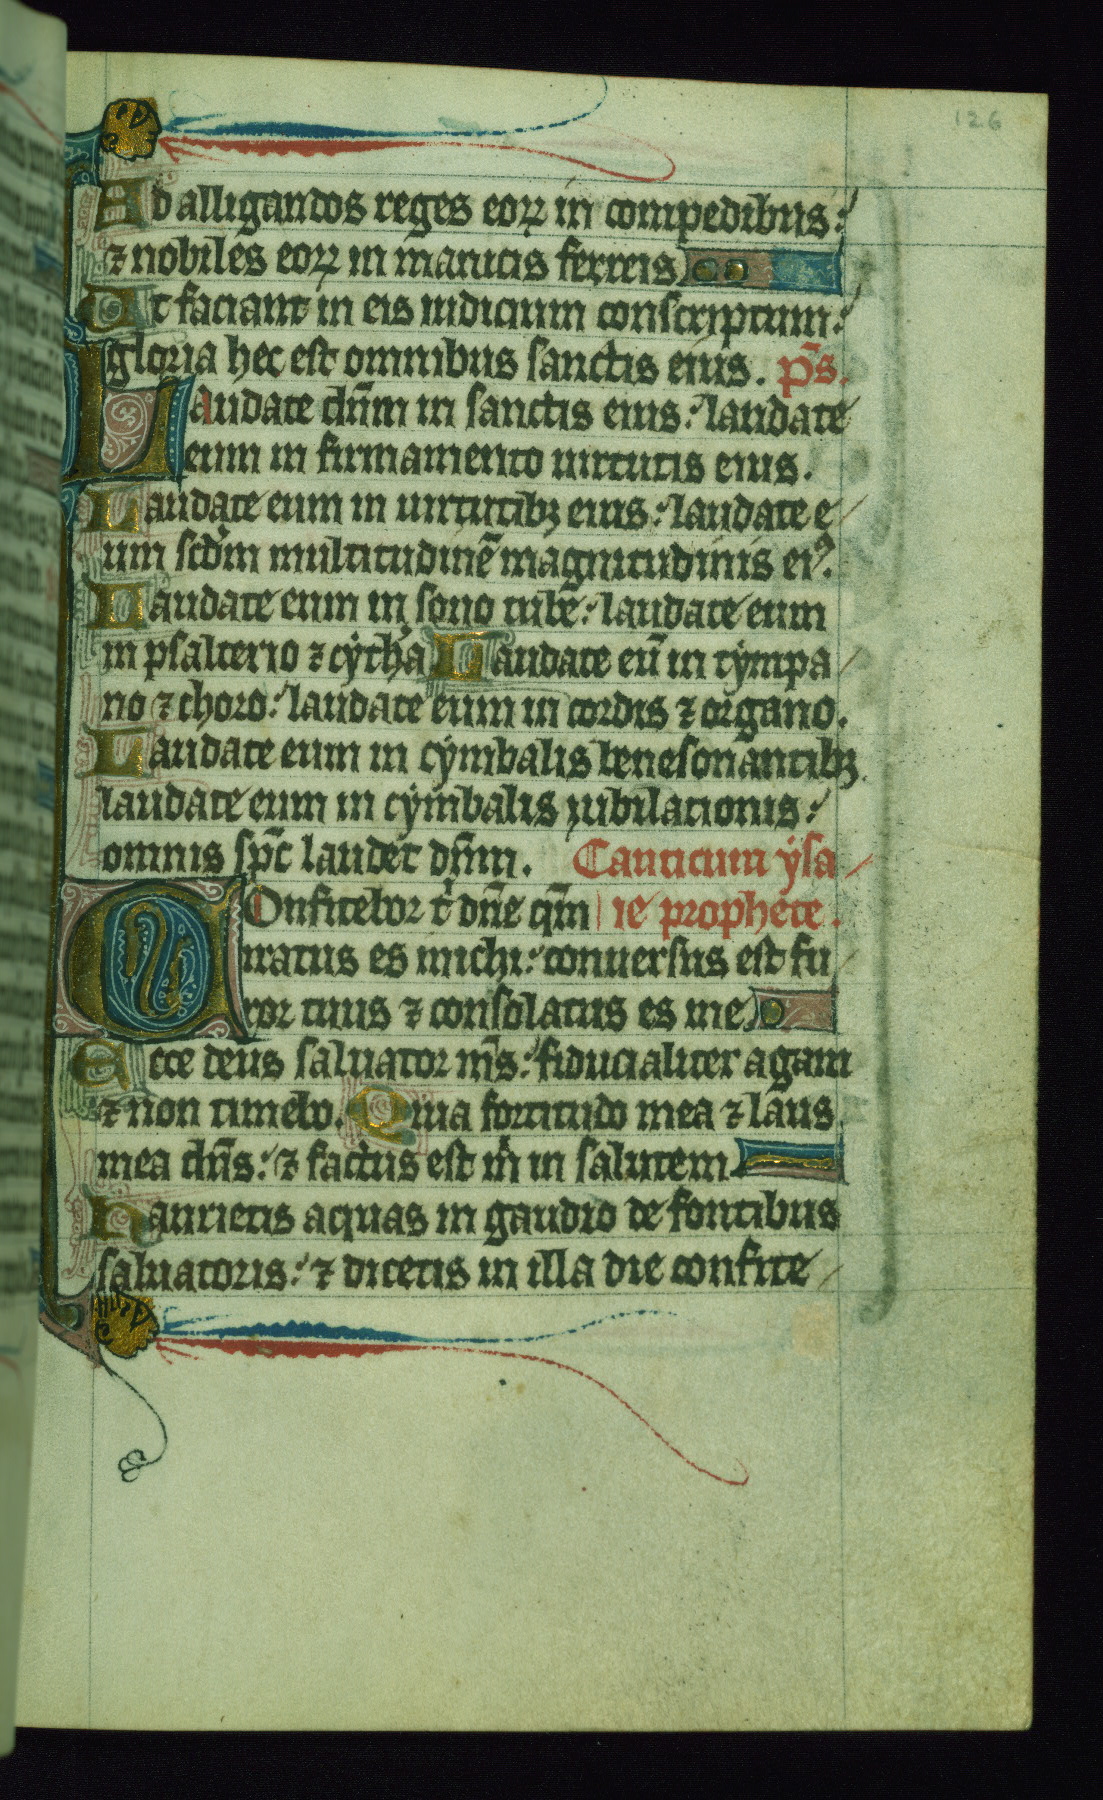 126
Ad alligandos reges eoꝝ in compedibus:
⁊ nobiles eoꝝ in manicis ferreis
Ut faciant in eis iudicium conscriptum:
gloria hec est omnibus sanctis eius. p̄s.
Laudate dn̄m in sanctis eius: laudate
eum in firmamento uirtutis eius.
Laudate eum in uirtutibꝫ eius: laudate e
um scd̓m multitudinē magnitudinis ei⁹.
Laudate eum in sono tubē: laudate eum
in psalterio ⁊ cẏtha̓ Laudate eū in tẏmpa
no ⁊ choro: laudate eum in cordis ⁊ organo.
Laudate eum in cẏmbalis benesonantibꝫ
laudate eum in cẏmbalis iubilationis:
omnis sp̄c laudet dn̄m. Canticum ẏsa
Confitebor t̓ dn̄e qm̄ ie prophete.
iratus es michi: conuersus est fu
ror tuus ⁊ consolatus es me
Ecce deus saluator m̄s: fiducialiter agam
⁊ non timebo. Quia fortitudo mea ⁊ laus
mea dn̄s: ⁊ factus est m̓ in salutem
Haurietis aquas in gaudio de fontibus
saluatoris: ⁊ dicetis in illa die confite